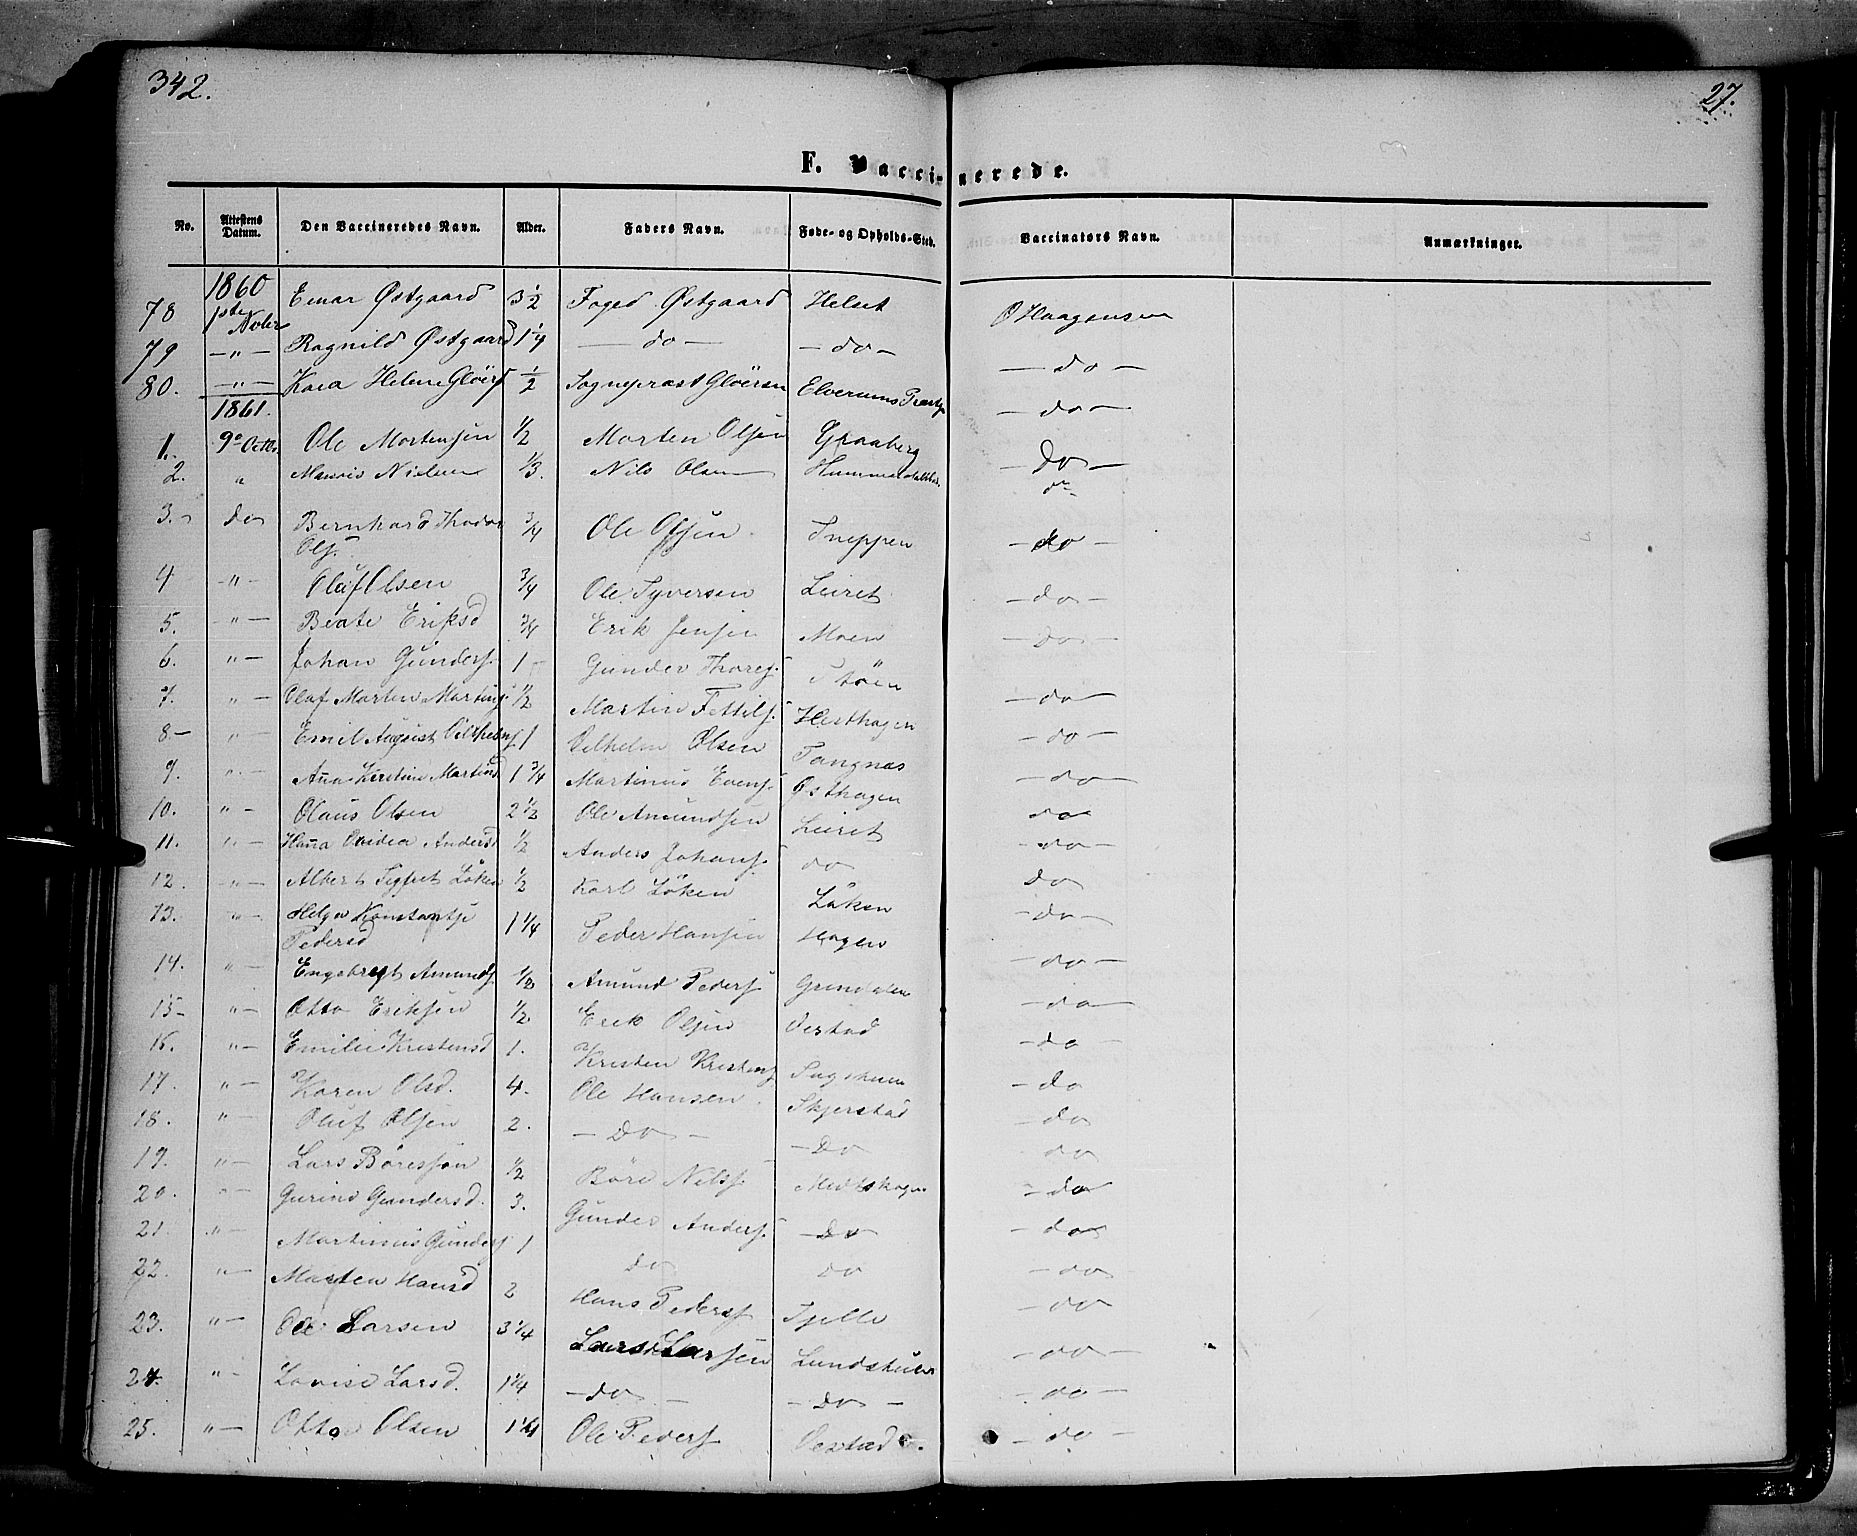 342.
27.
F. Vaccinerede.
No. Attestens Datum. Den Vaccineredes Navn. Alder. Faders Navn. Føde- og Opholds-Sted. Vaccinators Navn. Anmærkninger.
1860
78 1ste Novbr Einar Østgaard 3 1/2 Foged Østgaard Helset O Haagensen
79 —"— Ragnild Østgaard 1 1/4 — do — — do — — do —
80. —"— Kaia Helene Gløers 1/2 Sogneprest Gløersen Elverums Præstg — do —
1861.
1. 9de Octbr Ole Mortensen 1/2 Morten Olsen Graaberg — do —
2. " Nielsen 1/3. Nils Olsen do
3. do Bernhard Theodor 3/4 Ole Olsen Sneppen — do —
Ols.
4 —"— Oluf Olsen 3/4 Ole Syversen Leiret — do —
5. —"— Beate Eriksd 3/4 Erik Jensen Moen — do —
6. "— Johan Gunders. 1 — Gunder Thores. Støen
7. "— Olaf Morten Martins. 1/2 Martin Kettils. Hesthagen — do —
8 — "— Emil August Vilhelms 1 Vilhelm Olsen Tangnæs — do —
9. "— Ana Kirstine Martinsd 1 3/4 Martinus Evens. Østhagen — do —
10. "— Olaus Olsen 2 1/2 Ole Amundsen Leiret do
11. "— Hana Ovidea Andersd 1/2 Anders Johans. do — do —
12. "— Albert Sigfret Løken 1/2 Karl Løken Løken do
13. "— Helga Konstantse 1 1/4 Peder Hansen Hagen — do —
Pedersd
14. "— Engebregt Amunds. 1/8 Amund Peders. Grindalen — do —
15 — "— Otto Eriksen 1/2. Erik Olsen Vestad — do —
16. "— Emilie Kristensd 1. Kristen Kristens Sagstuen — do —
17. "— Karen Olsd. 4. Ole Hansen. Skjerstad — do
18. "— Oluf Olsen 2. — Do — — Do do
19. "— Lars Børesson 1/2 Børe Nilss. Midtskogen do
20. "— Gurine Gundersd. 3. Gunder Anders. — Do — — do
21. "— Martinus Gunders 1 do do — do
22. "— Marten Hansd 2 Hans Peders. Tjelle — do
23. "— Ole Larsen 3 1/4 Lars Larsen Lundstuen — do
24. "— Lovise Larsd. 1 1/4 — do — — Do — — do —
25. "— Otto Olsen 1 1/4 Ole Peders. Vestad. — do —